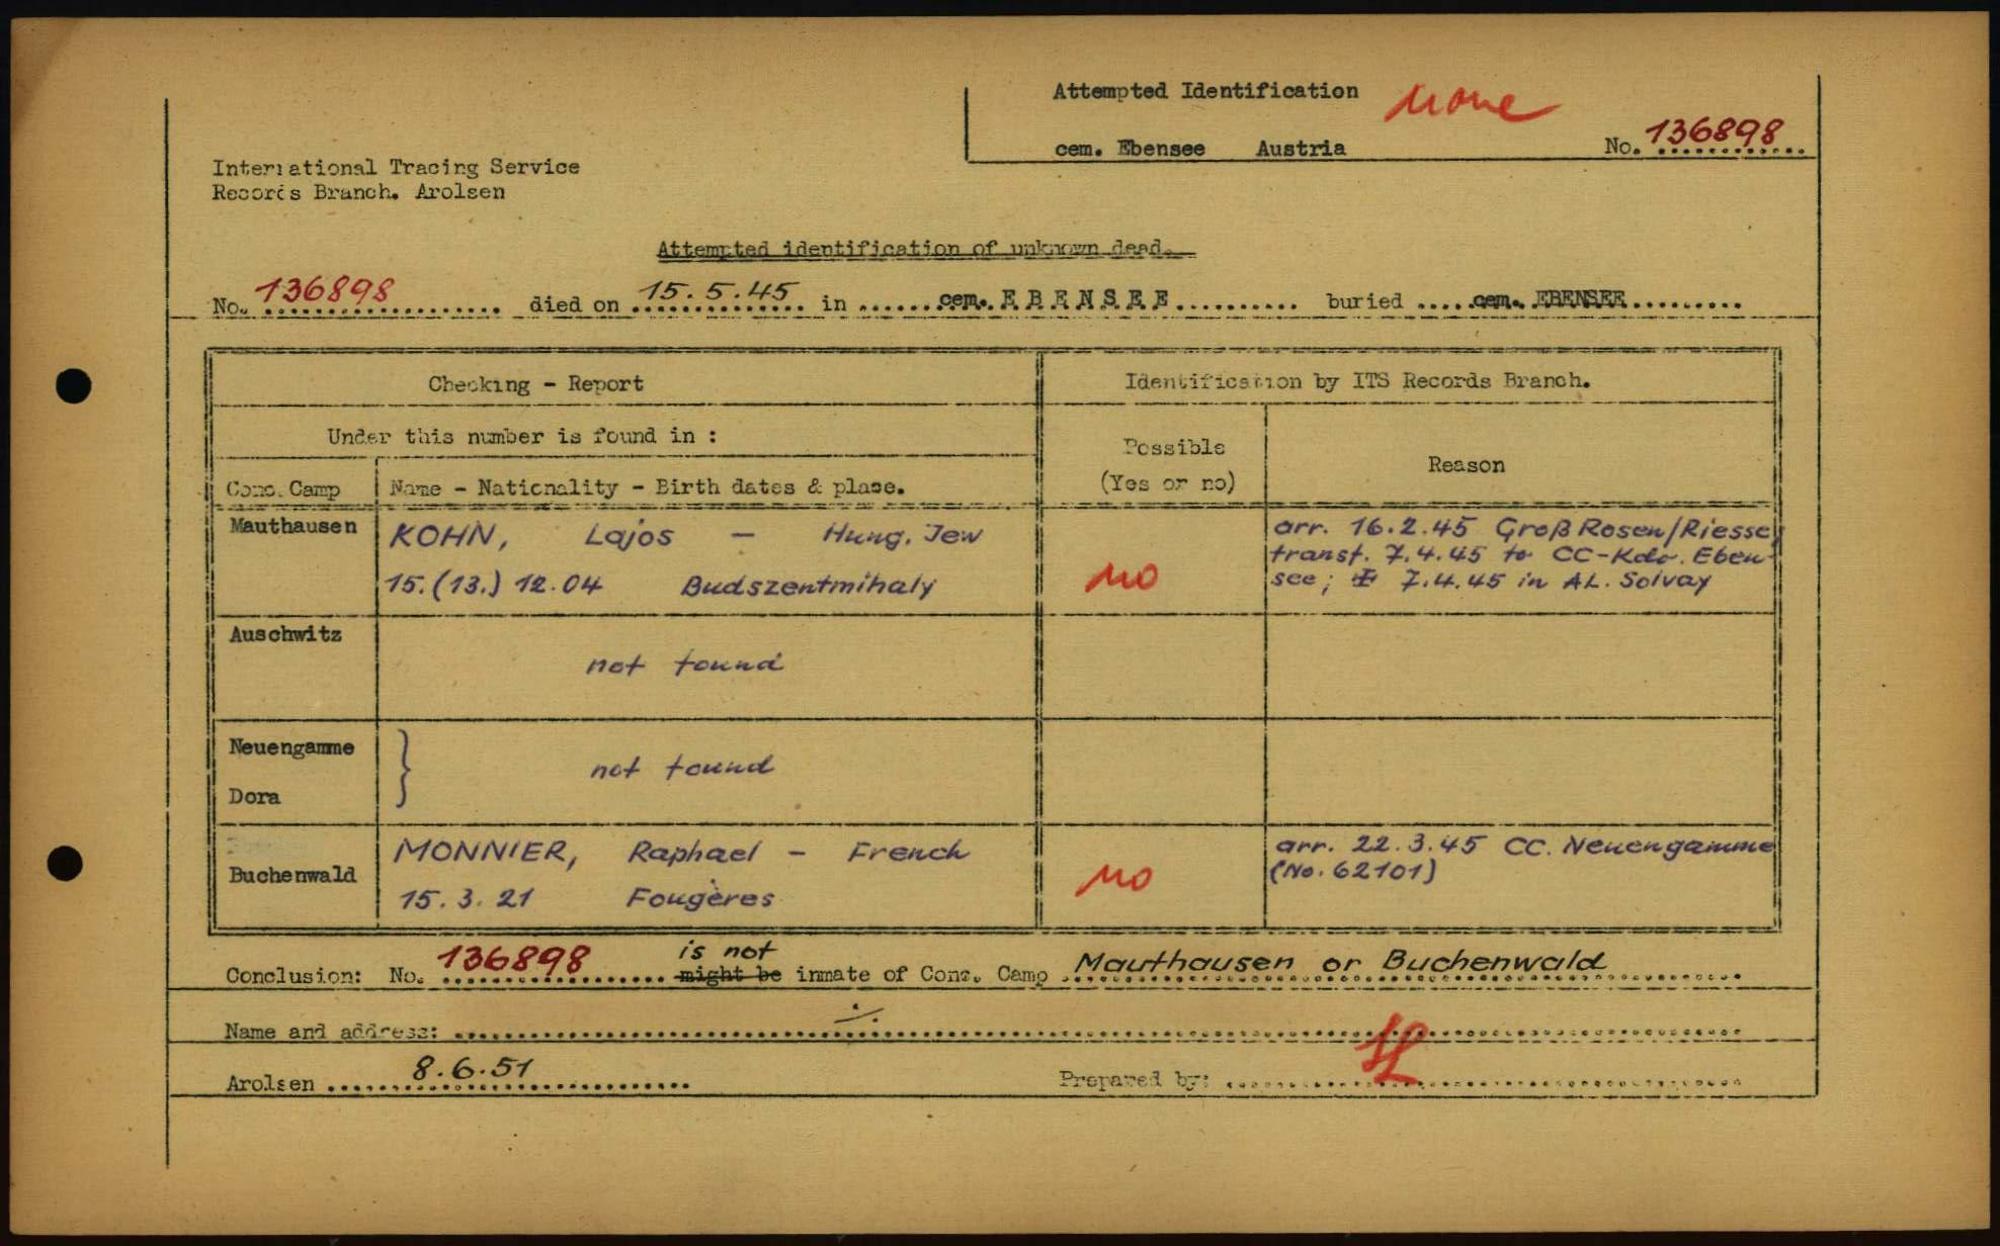 Attempted Identification none
cem. Ebensee Austria No. 136898
International Tracing Service
Records Branch. Arolsen
Attempted identification of unknown dead.
No. 136898 died on 15.5.45 in cem. EBENSEE buried cem. EBENSEE
Checking - Report
Identification by ITS Records Branch.
Under this number is found in :
Possible
(Yes or no)
Reason
Conc. Camp Name - Nationality - Birth dates & place.
Mauthausen KOHN, Lajos - Hung. Jew
15.(13.) 12.04 Budszentmihaly
no
arr. 16.2.45 Groß Rosen/Riesse,
transf. 7.4.45 to CC-Kdo. Eben-
see; 7.4.45 in AL. Solvay
Auschwitz
not found
Neuengamme
Dora
} not found
Buchenwald
MONNIER, Raphael - French
15.3.21 Fougères
no
arr. 22.3.45 CC. Neuengamme
(No. 62101)
is not
Conclusion: No. 136898 might be inmate of Conc. Camp Mauthausen or Buchenwald
Name and address: ./.
Arolsen 8.6.51 Prepared by: